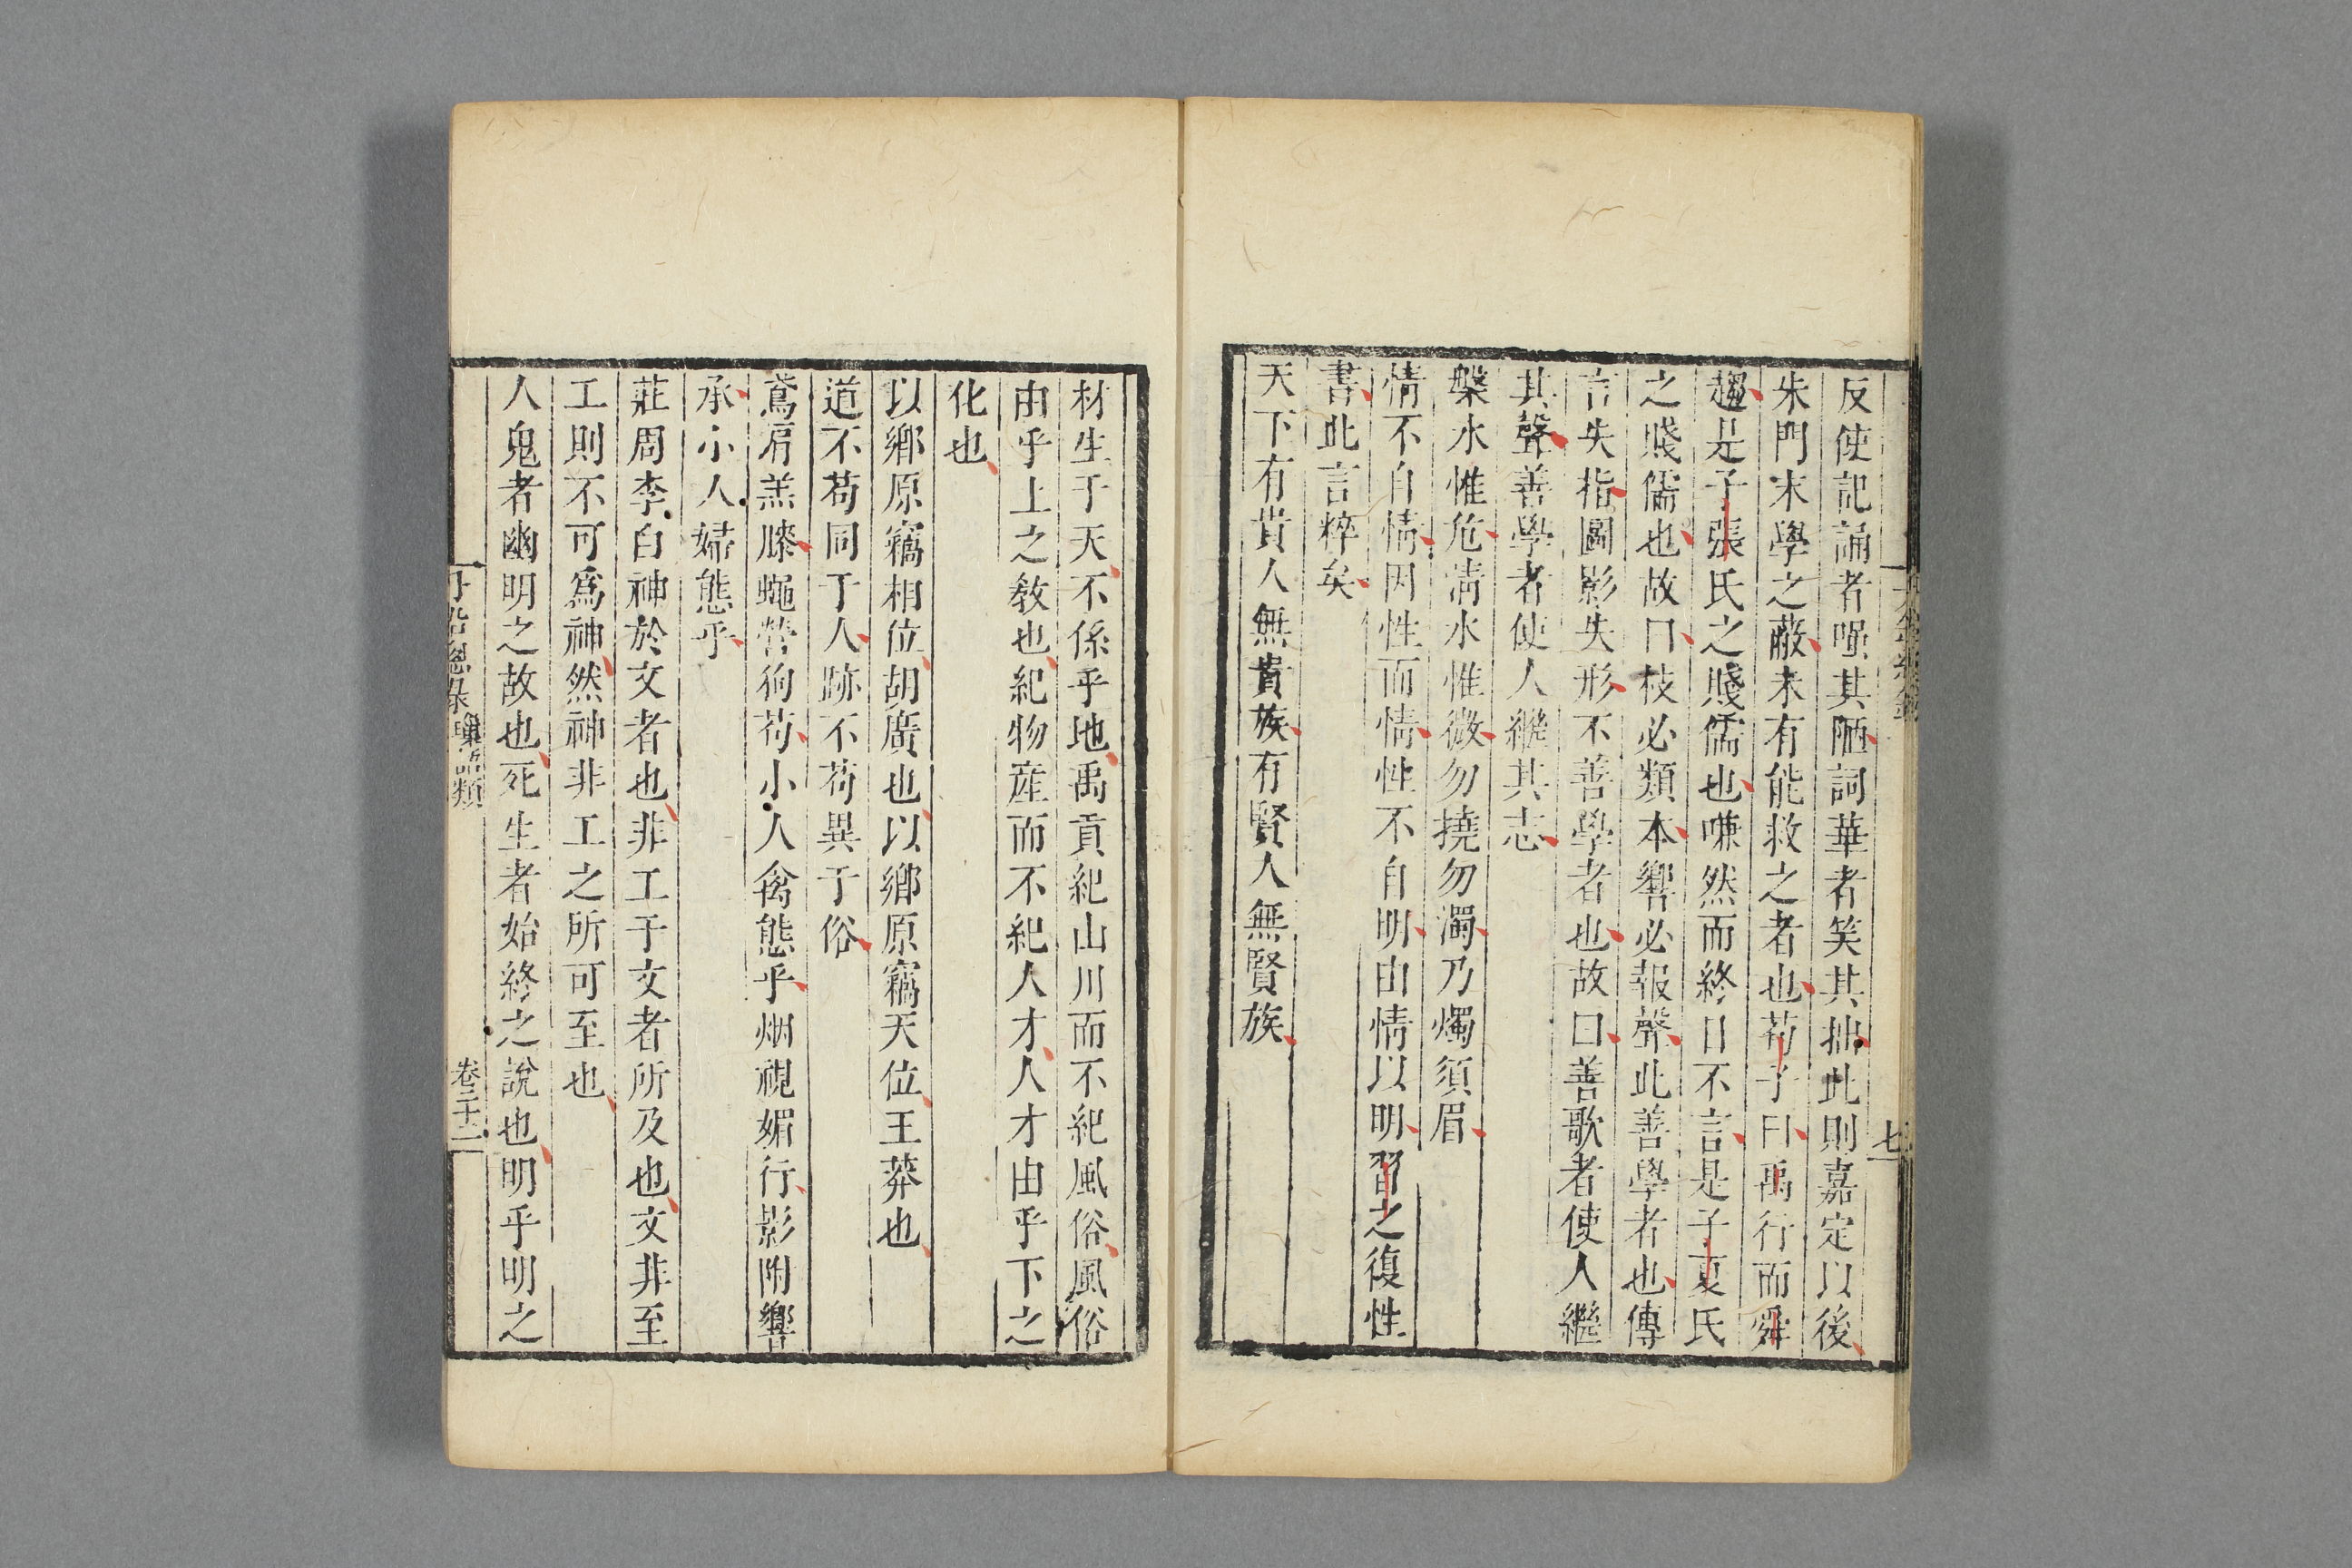 反使記誦者嗤其陋詞華者笑其拙此則嘉定以後
朱門末學之蔽未有能救之者也荀子曰禹行而舜
趨是子張氏之賤儒也嗛然而終日不言是子夏氏
之賤儒也故曰枝必類本響必報聲此善學者也傳
言失指圖影失形不善學者也故曰善歌者使人繼
其聲善學者使人繼其志
槃水惟危淸水惟微勿撓勿濁乃燭須眉
情不自情因性而情性不自明由情以明習之復性
書此言粹矣
天下有貴人無貴族有賢人無賢族
七
材生于天不係乎地禹貢紀山川而不紀風俗風俗
由乎上之敎也紀物産而不紀人才人才由乎下之
化也
以鄕原竊相位胡廣也以鄕原竊天位王莽也
道不苟同于人跡不苟異于俗
鳶肩羔膝蠅營狗苟小人禽態乎烟視媚行影附響
承小人婦態乎
莊周李白神於文者也非工于文者所及也文非至
工則不可爲神然神非工之所可至也
人鬼者幽明之故也死生者始終之說也明乎明之
升菴總彔 璅語類 卷二十二